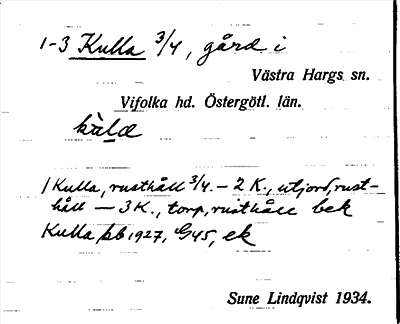 1-3 Kulla 3/4, gård i
Västra Hargs sn.
Vifolka hd. Östergötl. län.
1 Kulla, rusthåll 3/4. – 2 K., utjord, rust-
håll – 3 K., torp, rusthåll bek
Kulla jb 1927, G45, ek
Sune Lindqvist 1934.